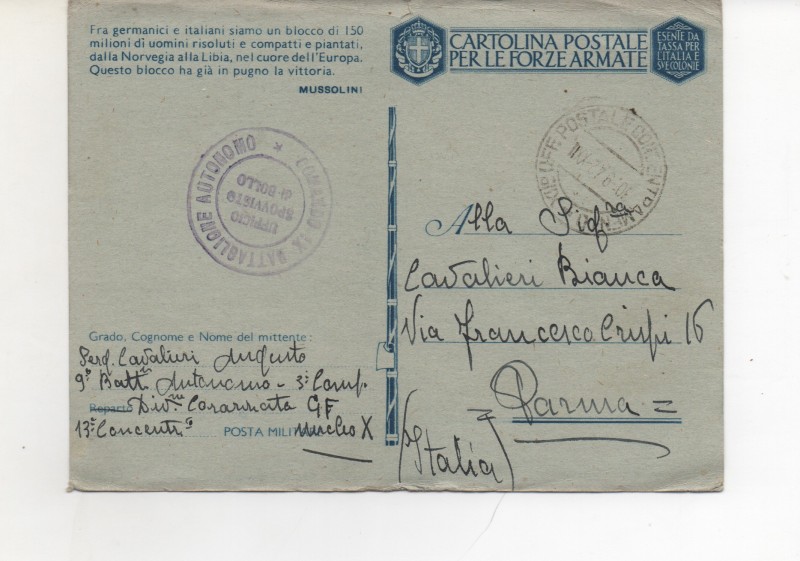 Fra germanici e italiani siamo un blocco di 150
milioni di uomini risoluti e compatti e piantati,
dalla Norvegia alla Libia, nel cuore dell'Europa.
Questo blocco ha già in pugno la vittoria.
MUSSOLINI
CARTOLINA POSTALE
PER LE FORZE ARMATE
ESENTE DA
TASSA PER
L'ITALIA E
SUE COLONIE
COMANDO IX BATTAGLIONE AUTONOMO *
UFFICIO
SPROVVISTO
DI BOLLO
UFF. POSTALE CONCENTRAMENTO
Alla Sigra
Cavalieri Bianca
Via Francesco Crispi 16
= Parma =
(Italia)
Grado, Cognome e Nome del mittente:
Serg. Cavalieri Augusto
9° Battn Autonomo - 3ª Comp.
Reparto Divne Corazzata GF
13° Concentro POSTA MILITARE Nucleo X